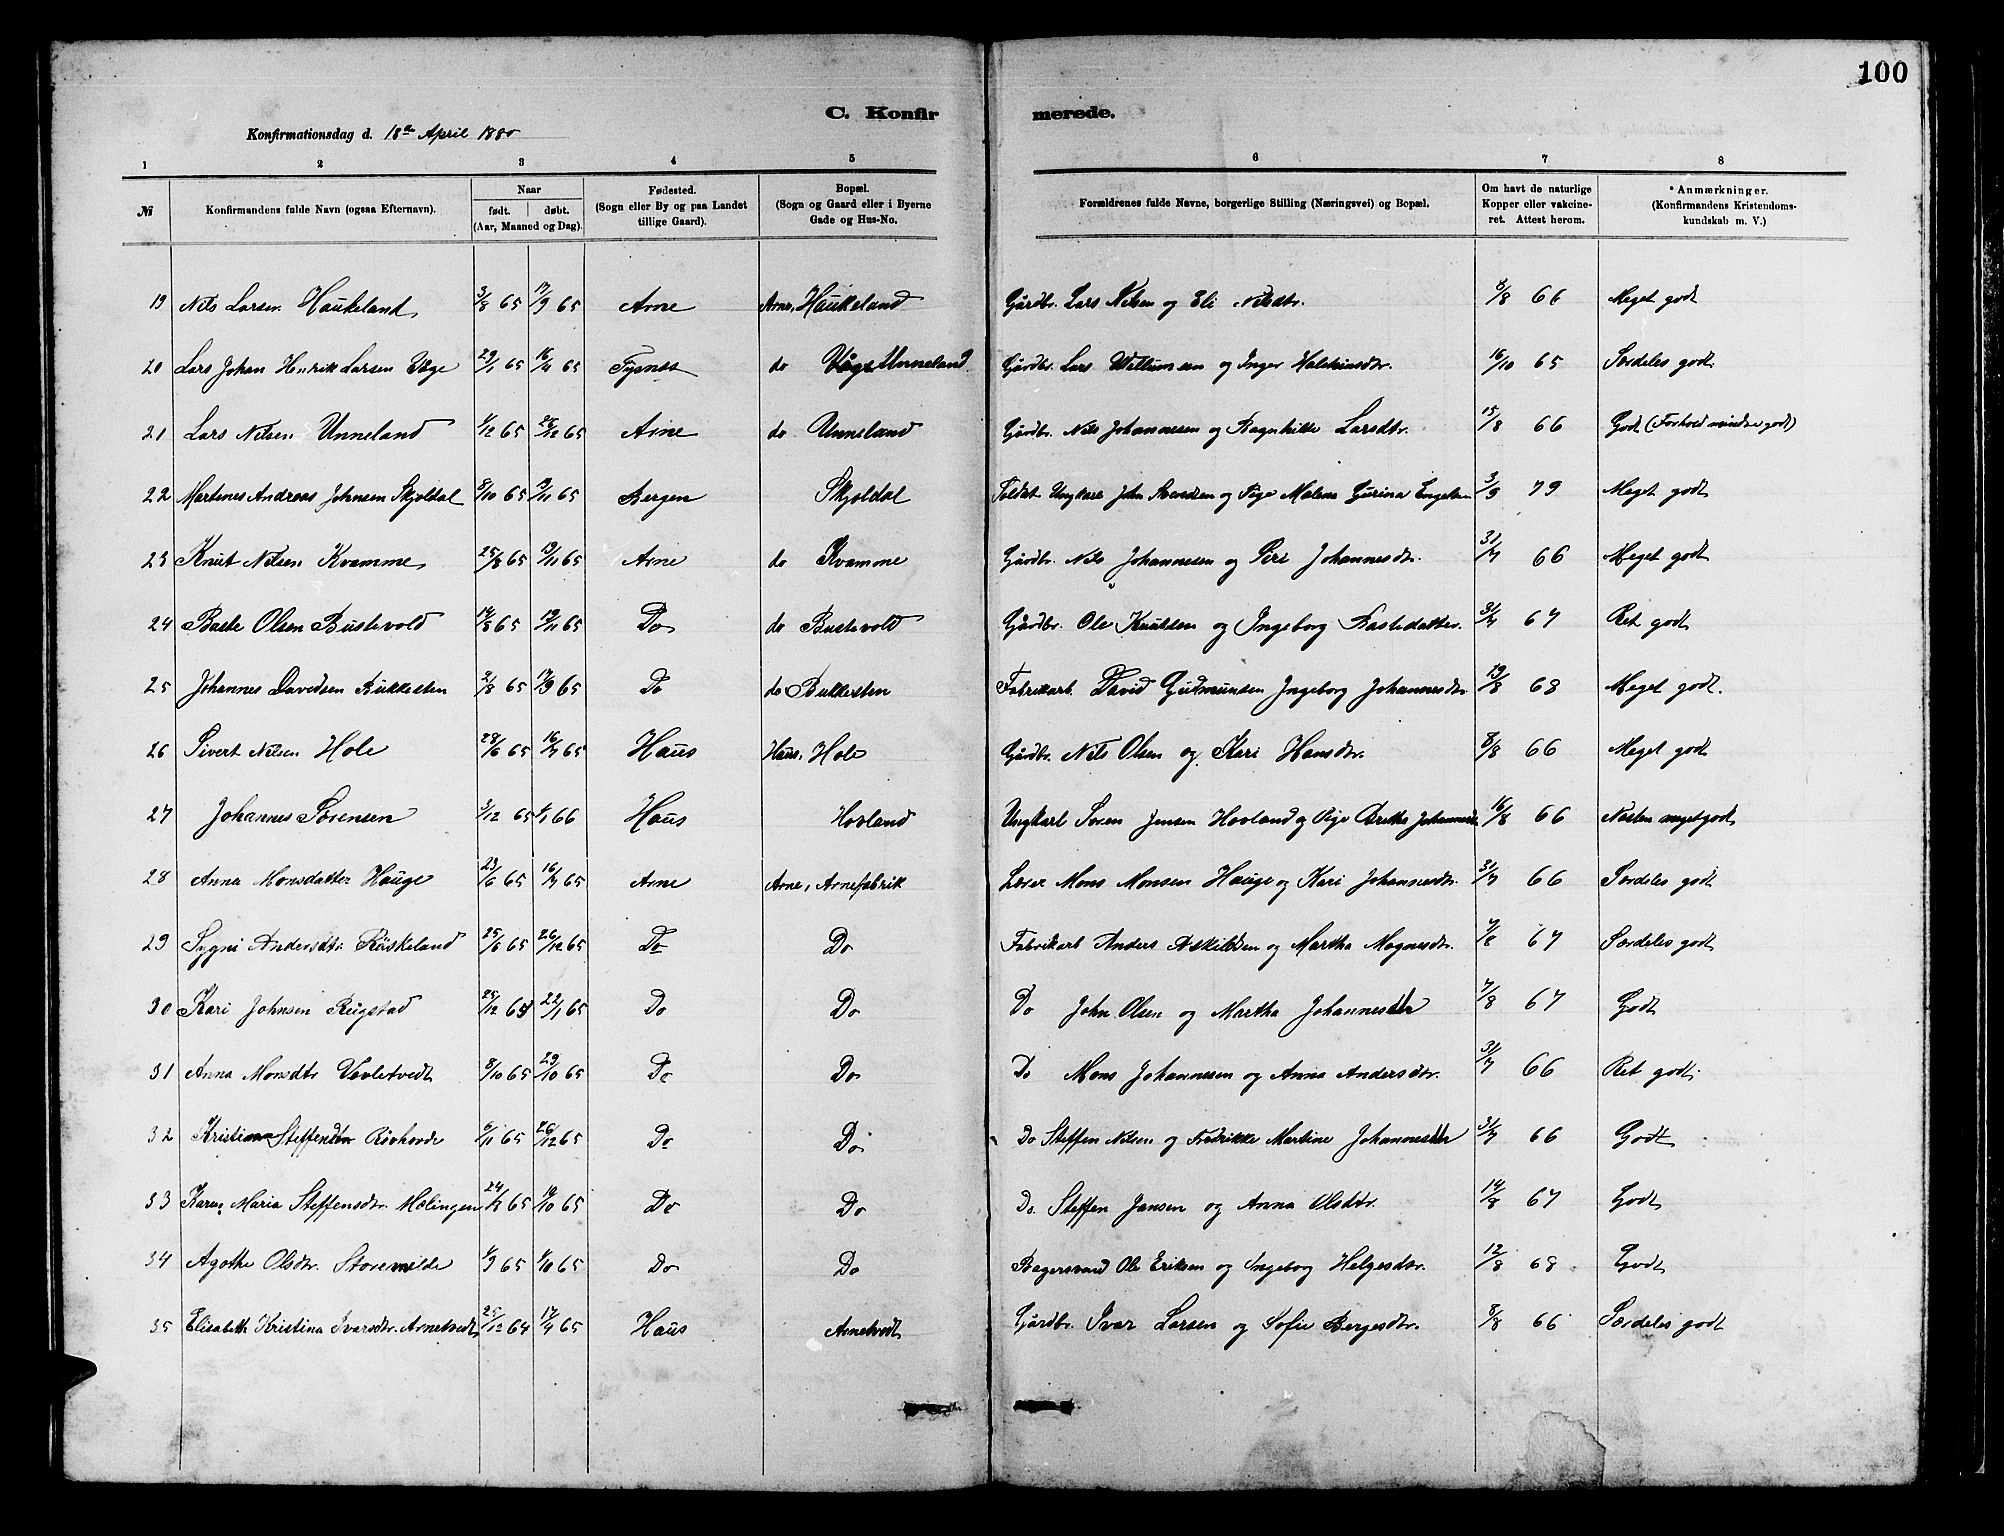 100
C. Konfir merede.
Konfirmationsdag d. 18de April 1880
1 2 3 4 5 6 7 8
№ Konfirmandens fulde Navn (ogsaa Efternavn). Naar født. døbt. (Aar, Maaned og Dag). Fødested. (Sogn eller By og paa Landet tillige Gaard). Bopæl. (Sogn og Gaard eller i Byerne Gade og Hus-No. Forældrenes fulde Navne, borgerlige Stilling (Næringsvei) og Bopæl. Om havt de naturlige Kopper eller vakcineret. Attest herom. Anmærkninger. (Konfirmandens Kristendomskundskab m. V.)
19 Nils Larsen Haukeland 3/8 65 17/9 65 Arne Arne, Haukeland Gårdbr. Lars Nilsen og Eli Nilsdtr. 8/8 66 Meget godt
20 Lars Johan Henrik Larsen Våge 29/1 65 16/4 65 Tysnes do Unneland Gårdbr. Lars Willumsen og Inger Halsteinsdtr. 16/10 65 Særdeles godt
21 Lars Nilsen Unneland 1/12 65 26/12 65 Arne do Unneland Gårdbr. Nils Johannesen og Ragnhilde Larsdtr. 15/8 66 Godt (Forhold mindre godt)
22 Martines Andreas Johnsen Skjoldal 8/10 65 65 Bergen Skjoldal Ungkarl John Svendsen og Pige Malene Gurina 3/9 79 Meget godt
23 Knut Nilsen Kvamme 25/8 65 19/11 65 Arne do Kvamme Gårdbr. Nils Johannesen og Siri Johannesdtr. 31/7 66 Meget godt
24 Baste Olsen Bustevold 14/8 65 19/11 65 Do do Bustevold Gårdbr. Ole Knutsen og Ingeborg Bastedatter. 31/7 67 Ret godt
25 Johannes Davidsen Bukkesten 2/8 65 17/9 65 Do do Bukkesten Fabrikarb. David Gudmunsen Ingeborg Johannesdtr 29/8 68 Meget godt.
26 Sivert Nilsen Hole 28/6 65 16/7 65 Haus Haus, Hole Gårdbr. Nils Olsen og Kari Hansdtr. 8/8 66 Meget godt
27 Johannes Sørensen 3/12 65 1/1 66 Haus Hovland Ungkarl Søren Jensen Hovland og Pige Brethe 16/8 66 Næsten meget godt
28 Anna Monsdatter Hauge 23/6 65 16/7 65 Arne Arne, Arnefabrik Lærer Mons Monsen Hauge og Kari Johannesdtr. 31/7 66 Særdeles godt
29 Sygni Andersdtr Røskeland 25/6 65 26/12 65 Do Do Fabrikarb Anders Askildsen og Martha Magnesdtr. 7/8 67 Særdeles godt
30 Kari Johnsen Rugstad 25/12 22/1 65 Do Do Do John Olsen og Martha Johannesdtr 7/8 67 Godt
31 Anna Monsdtr 8/10 65 29/10 65 Do Do Do Mons Johannesen og Anna Andersdtr. 31/7 66 Ret godt
32 Kristiane Steffensdtr 6/11 65 26/12 65 Do Do Do Steffen Nilsen og Fredrikke Martine Johannesdtr 31/7 66 Godt
33 Karen Maria Steffensdtr. Mælingen 24/8 65 10/10 65 Do Do Do. Steffen Jansen og Anna Olsdtr. 14/8 67 Godt
34 Agathe Olsdtr. Storemilde 1/9 65 1/10 65 Do Do Bagersvend Ole Eriksen og Ingeborg Helgesdtr. 12/8 68 Godt
35 Elisabeth Kristina Ivarsdtr. Arnetvedt 25/12 64 17/4 65 Haus Arnetvedt Gårdbr. Ivar Larsen og Sofie Bergesdtr. 8/8 66 Særdeles godt